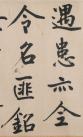 遇患亦全
令名匪銘